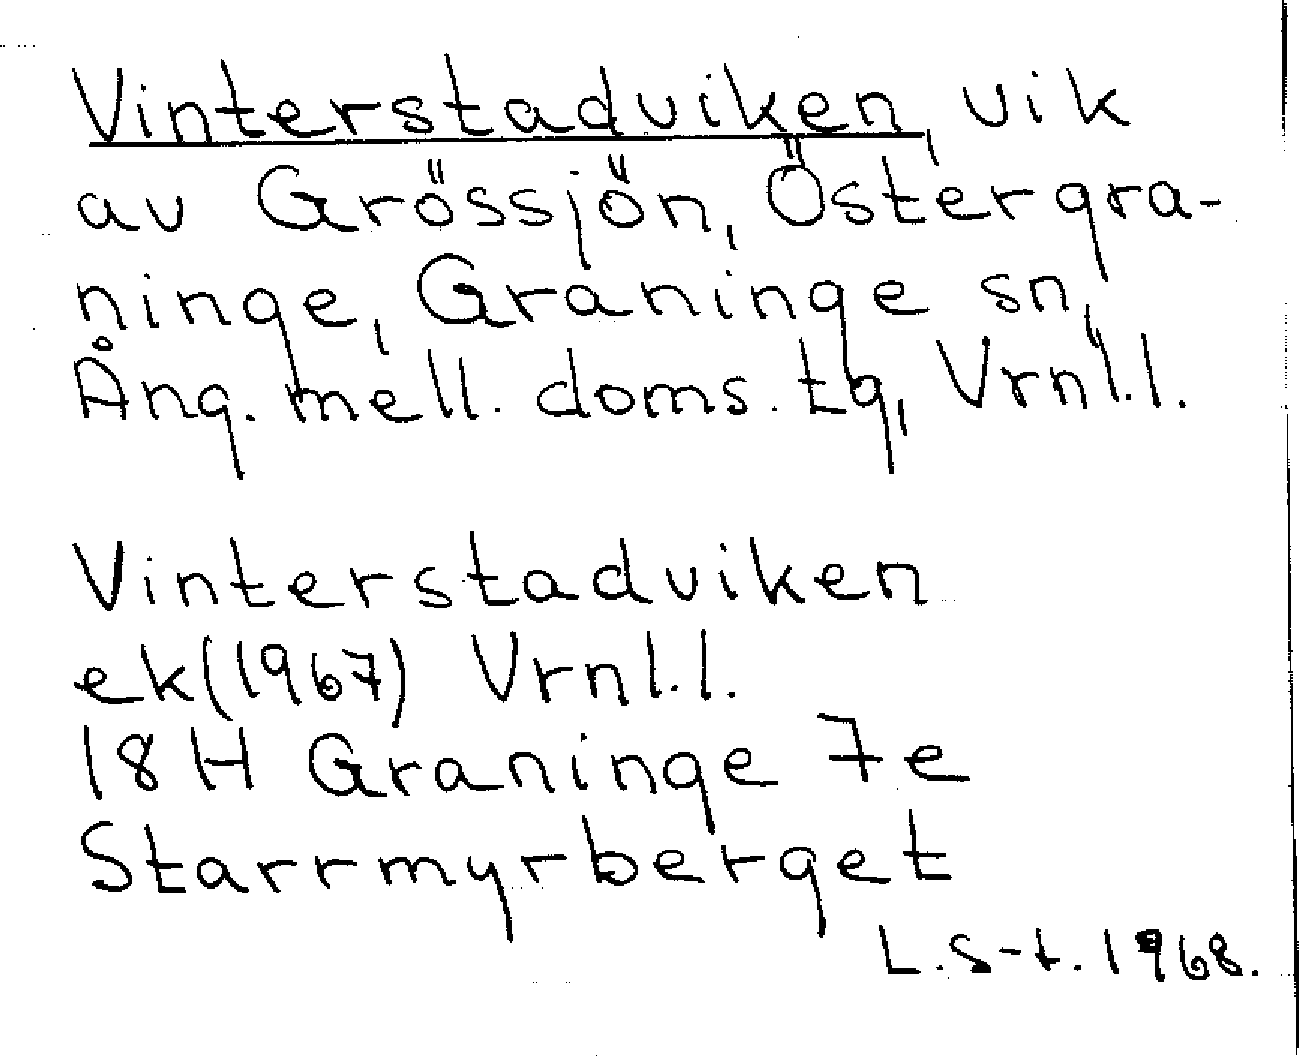 Vinterstadviken, vik
av Grössjön, Östergra-
ninge, Graninge sn,
Ång. mell. doms. tg, Vrnl.l.
Vinterstadviken
ek(1967) Vrnl.l.
18 H Graninge 7e
Starrmyrberget
L.S-t. 1968.